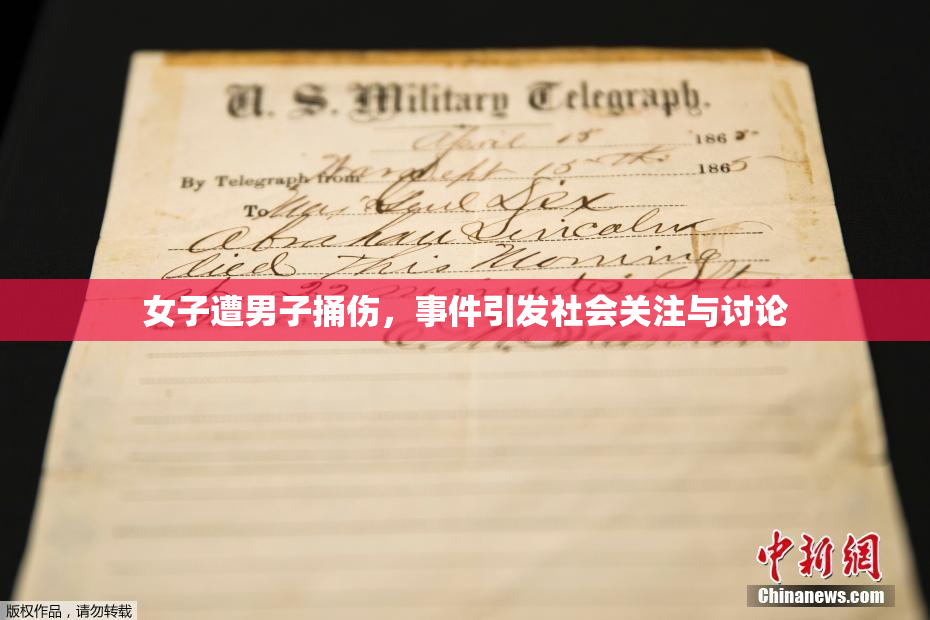 U. S. Military Telegraph.
April 15 1865
By Telegraph from War Dept 15th 1865
To Maj Genl Dix
Abraham Lincoln
died This Morning
at 22 minutes after
女子遭男子捅伤，事件引发社会关注与讨论
E. M. Stanton
中新網
Chinanews.com
版权作品，请勿转载